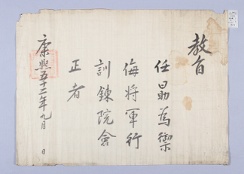 教旨
任昌為禦
侮將軍行
訓鍊院僉
正者
康熙五十二年九月 日